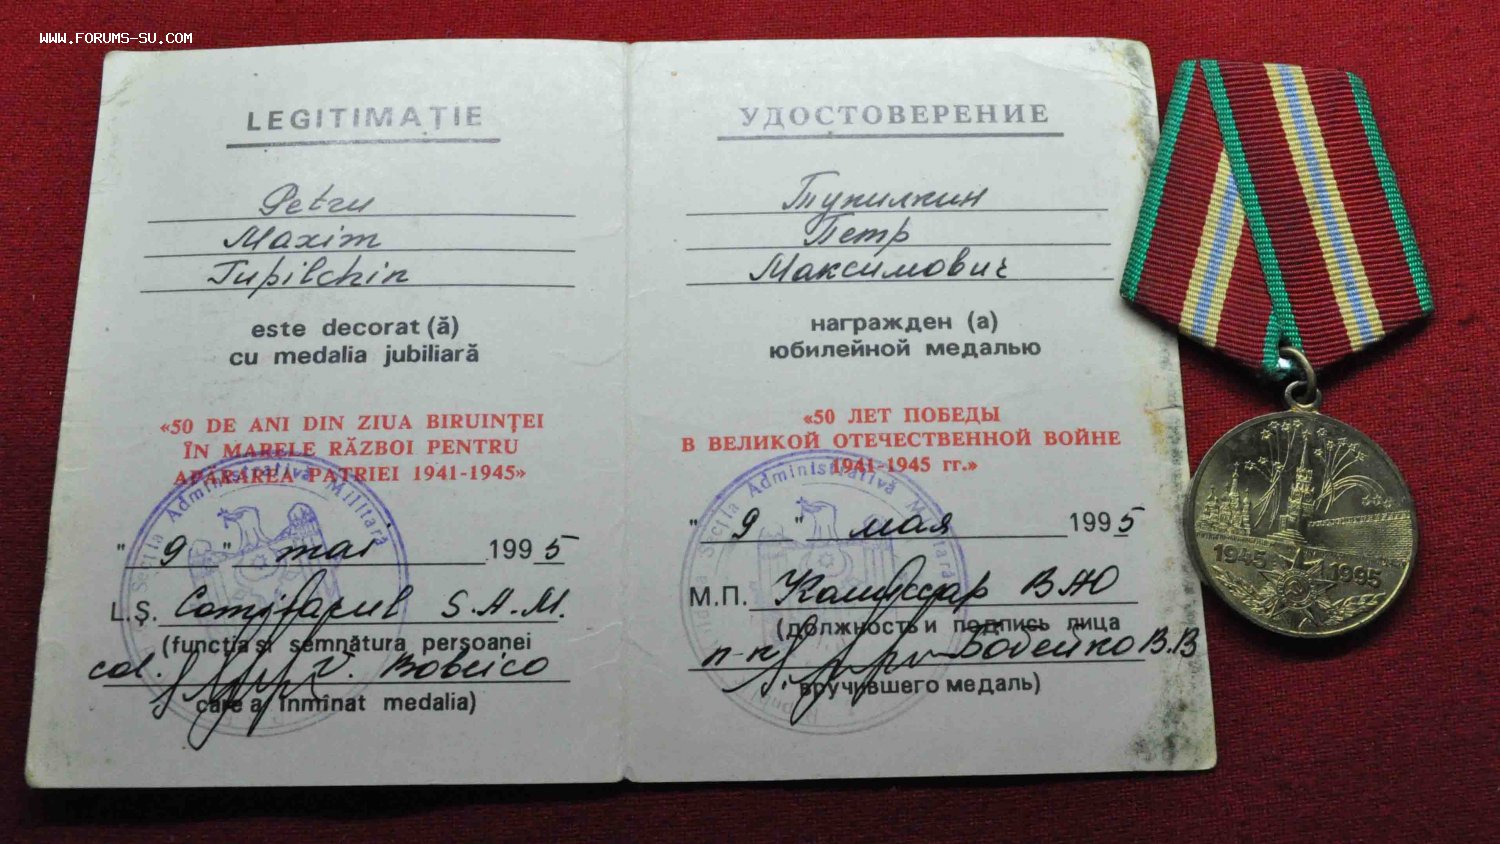 WWW.FORUMS-SU.COM
LEGITIMAȚIE
Petru
Maxim
Tupilchin
este decorat (ă)
cu medalia jubiliară
«50 DE ANI DIN ZIUA BIRUINȚEI
ÎN MARELE RĂZBOI PENTRU
APĂRAREA PATRIEI 1941-1945»
Secția Administrativă Militară
" 9 " mai 1995
L.Ș. Comisarul S.A.M.
(funcția și semnătura persoanei
col. V. Bobeico
care a înmînat medalia)
УДОСТОВЕРЕНИЕ
Тупилкин
Петр
Максимович
награжден (а)
юбилейной медалью
«50 ЛЕТ ПОБЕДЫ
В ВЕЛИКОЙ ОТЕЧЕСТВЕННОЙ ВОЙНЕ
1941-1945 гг.»
Secția Administrativă Militară
" 9 " мая 1995
М.П. Комиссар ВАЮ
(должность и подпись лица
п-к Бобейко В.В
вручившего медаль)
1945 1995